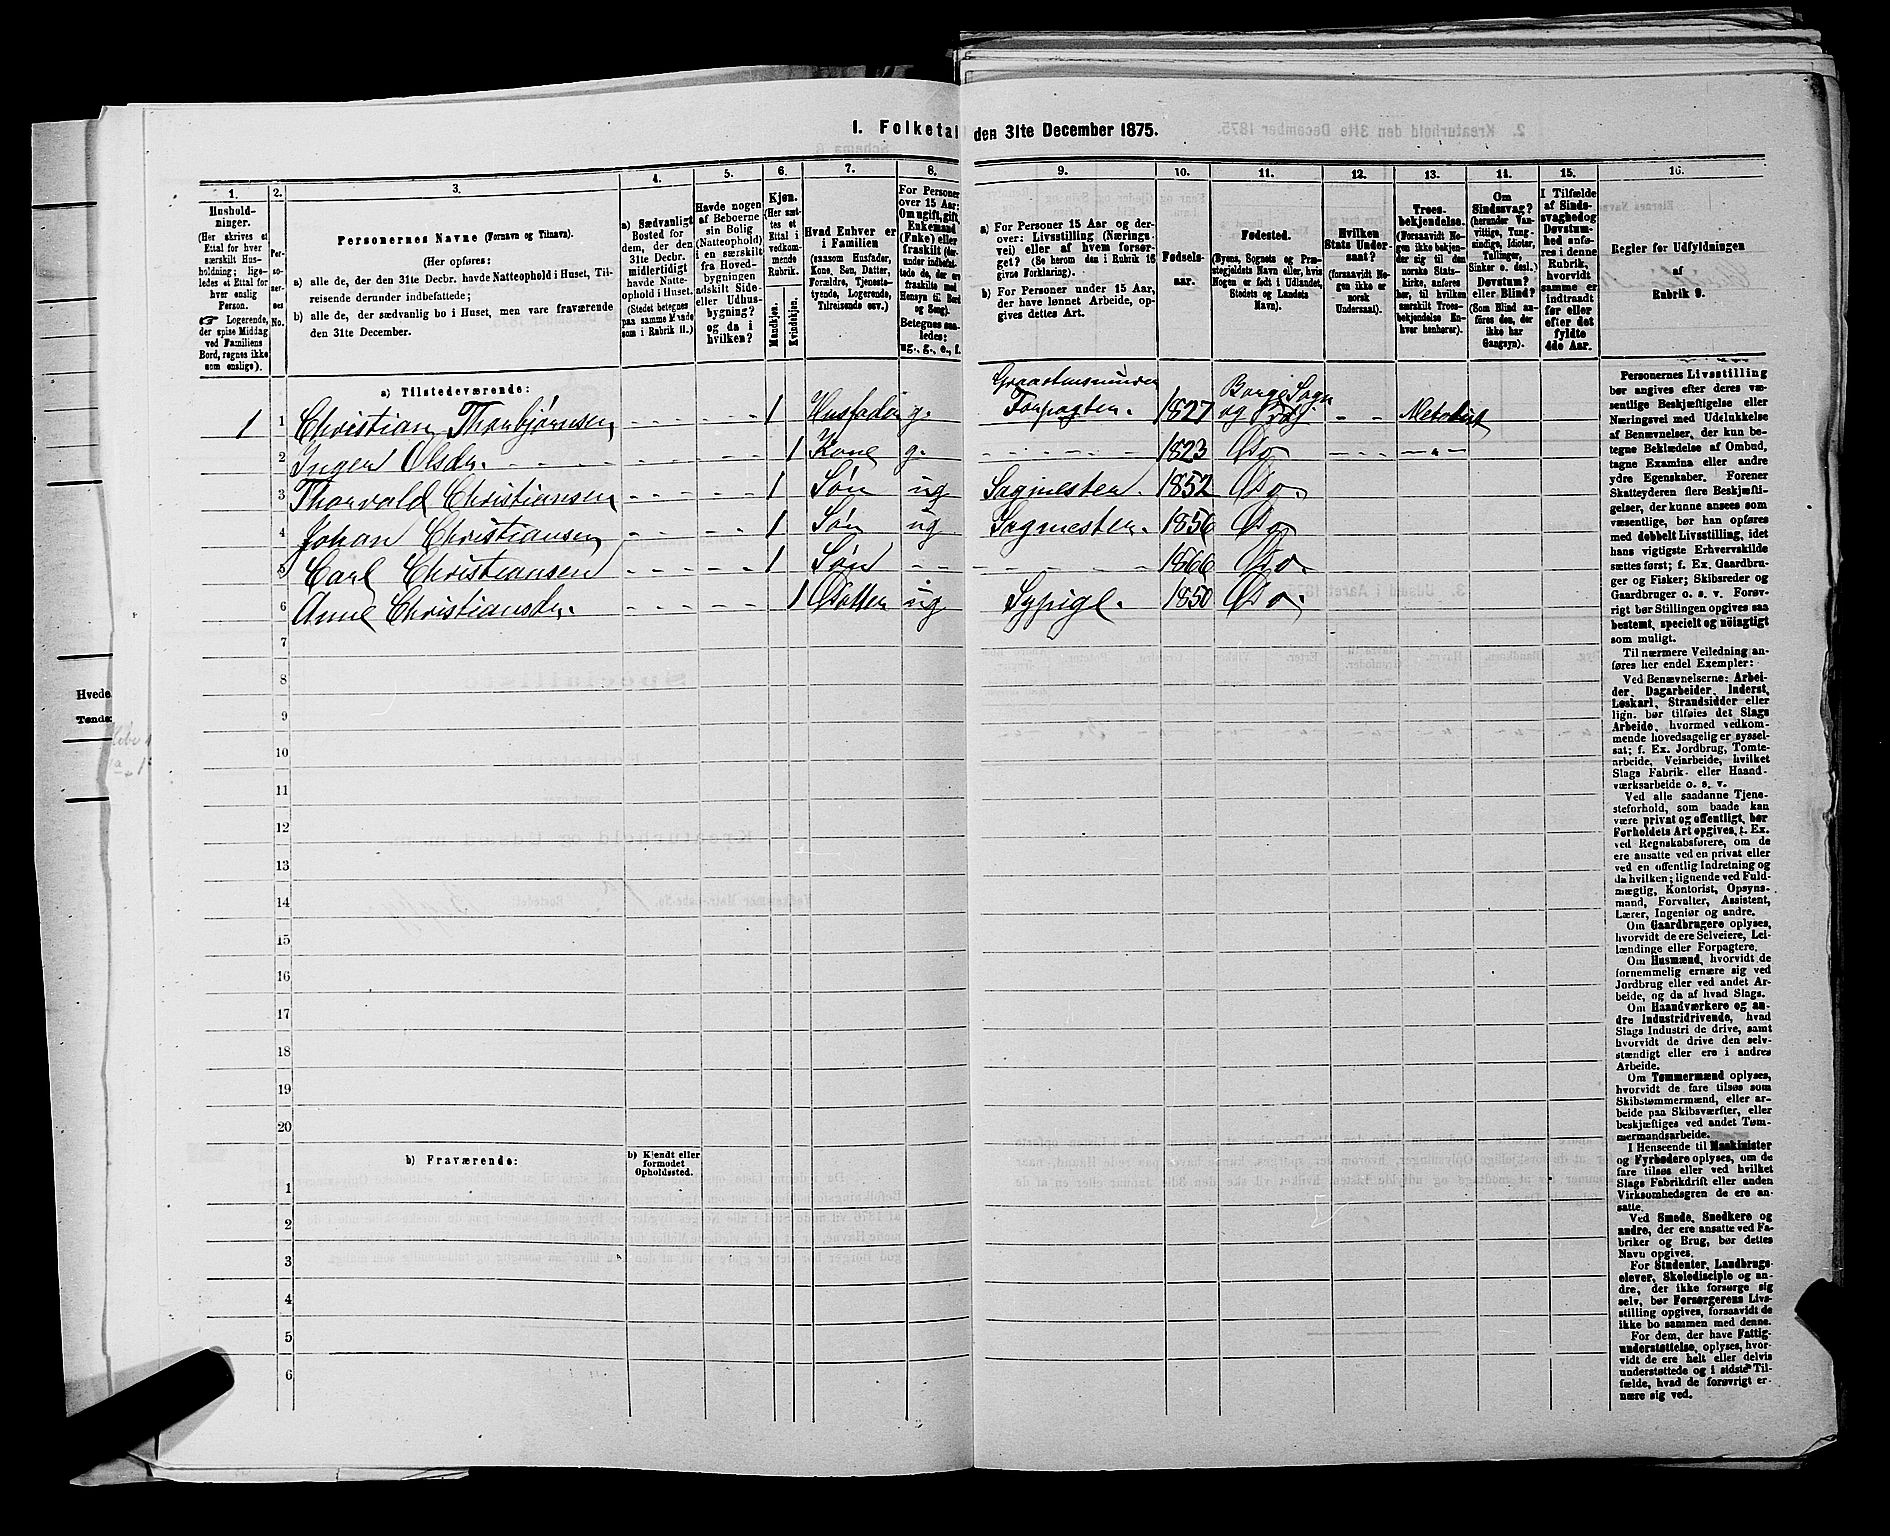 1. Folketal den 31te December 1875.
1. 2. 3. 4. 5. 6. 7. 8. 9. 10. 11. 12. 13. 14. 15. 16.
Hushold-
ninger.
(Her skrives et
Ettal for hver
særskilt Hus-
holdning; lige-
ledes et Ettal for
hver enslig
Person.
Logerende,
der spise Middag
ved Familiens
Bord, regnes ikke
som enslige).
Per-
so-
ner-
nes
No.
Personernes Navne (Fornavn og Tilnavn).
(Her opføres:
a) alle de, der den 31te Decbr. havde Natteophold i Huset, Til-
reisende derunder indbefattede;
b) alle de, der sædvanlig bo i Huset, men vare fraværende
den 31te December.
a) Sædvanligt
Bosted for
dem, der den
31te Decbr.
midlertidigt
havde Natte-
ophold i Huset.
(Stedet betegnes
paa samme Maade
som i Rubrik 11.)
Havde nogen
af Beboerne
sin Bolig
(Natteophold)
i en særskilt
fra Hoved-
bygningen
adskilt Side-
eller Udhus-
bygning?
og da i
hvilken?
Kjøn.
(Her sæt-
tes et
Ettal i
vedkom-
mende
Rubrik.
Mandkjøn.
Kvindekjøn.
Hvad Enhver er
i Familien
(saasom Husfader,
Kone, Søn, Datter,
Forældre, Tjeneste-
tyende, Logerende,
Tilreisende osv.)
For Personer
over 15 Aar:
Om ugift, gift,
Enkemand
(Enke) eller
fraskilt (der-
under indbefat-
tede de, der ere
fraskilte med
Hensyn til Bord
og Seng).
Betegnes saa-
ledes:
ug., g., e., f.
a) For Personer 15 Aar og der-
over: Livsstilling (Nærings-
vei) eller af hvem forsør-
get? (Se herom des i Rubrik 16
givne Forklaring).
b) For Personer under 15 Aar,
der have lønnet Arbeide, op-
gives dettes Art.
Fødsels-
aar.
Fødested.
(Byens, Sognets og Præ-
stegjeldets Navn eller, hvis
Nogen er født i Udlandet,
Stedets og Landets
Navn).
Hvilken
Stats Under-
saat?
(forsaavidt No-
gen ikke er
norsk
Undersaat).
Troes-
bekjendelse.
(Forsaavidt No-
gen ikke bekjen-
der sig til den
norske Stats-
kirke, anføres
her, til hvilken
særskilt Troes-
bekjendelse En-
hver henhører).
Om
Sindssvag?
(herunder Van-
vittige, Tung-
sindige, Idioter,
Tullinger,
Sinker o. desl.)
Døvstum?
eller Blind?
(Som Blind an-
føres den, der
ikke har
Gangsyn).
I Tilfælde
af Sinds-
svaghed og
Døvstum-
hed anfø-
res i denne
Rubrik,
hvorvidt
samme er
indtraadt
før eller
efter det
fyldte
4de Aar.
Regler for Udfyldningen
af
Rubrik 9.
a) Tilstedeværende:
1 1 Christian Thorbjørnsen 1 Husfader g. Graastensminder Forpagter. 1827 Borge Sogn og Præg Metodist
2 Inger Olsdr. 1 Kone g. 1823 Do
3 Thorvald Christiansen 1 Søn ug Sagmester. 1852 Do.
4 Johan Christiansen 1 Søn ug Sagmester. 1856 Do
5 Carl Christiansen 1 Søn 1866 Do.
6 Anne Christiansdr. 1 Datter ug Sypige. 1850 Do.
7
8
9
10
11
12
13
14
15
16
17
18
19
20
b) Fraværende:
b) Kjendt eller
formodet
Opholdssted.
1
2
3
4
5
6
Personernes Livsstilling
bør angives efter deres væ-
sentlige Beskjæftigelse eller
Næringsvei med Udelukkelse
af Benævnelser, der kun be-
tegne Beklædelse af Ombud,
tagne Examina eller andre
ydre Egenskaber. Forener
Skatteyderen flere Beskjæfti-
gelser, der kunne ansees som
væsentlige, bør han opføres
med dobbelt Livsstilling, idet
hans vigtigste Erhvervskilde
sættes først; f. Ex. Gaardbru-
ger og Fisker; Skibsreder og
Gaardbruger o. s. v. Forøv-
rigt bør Stillingen opgives saa
bestemt, specielt og nöiagtigt
som muligt.
Til nærmere Veiledning an-
føres her endel Exempler:
Ved Benævnelserne: Arbei-
der, Dagarbeider, Inderst,
Løskarl, Strandsidder eller
lign. bør tilføies det Slags
Arbeide, hvormed vedkom-
mende hovedsagelig er syssel-
sat; f. Ex. Jordbrug, Tomte-
arbeide, Veiarbeide, hvilket
Slags Fabrik- eller Haand-
værksarbeide o. s. v.
Ved alle saadanne Tjene-
steforhold, som baade kan
være privat og offentligt, bør
Forholdets Art opgives, f. Ex.
ved Regnskabsførere, om de
ere ansatte ved en privat eller
ved en offentlig Indretning og
da hvilken; lignende ved Fuld-
mægtig, Kontorist, Opsyns-
mand, Forvalter, Assistent,
Lærer, Ingeniør og andre.
Om Gaardbrugere oplyses,
hvorvidt de ere Selveiere, Lei-
lændinge eller Forpagtere.
Om Husmænd, hvorvidt de
fornemmelig ernære sig ved
Jordbrug eller ved andet Ar-
beide, og da af hvad Slags.
Om Haandværkere og an-
dre Industridrivende, hvad
Slags Industri de drive, samt
hvorvidt de drive den selv-
stændigt eller ere i andres
Arbeide.
Om Tømmermænd oplyses,
hvorvidt de fare tilsøs som
Skibstømmermænd, eller ar-
beide paa Skibsværfter, eller
beskjæftiges ved andet Tøm-
mermandsarbeide.
I Henseende til Maskinister
og Fyrbødere oplyses, om de
fare tilsøs eller ved hvilket
Slags Fabrikdrift eller anden
Virksomhedsgren de ere an-
satte.
Ved Smede, Snedkere og
andre, der ere ansatte ved Fa-
briker og Brug, bør dettes
Navn opgives.
For Studenter, Landbrugs-
elever, Skoledisciple og an-
dre, der ikke forsørge sig
selv, bør Forsørgerens Livs-
stilling opgives, forsaavidt de
ikke bo sammen med denne.
For dem, der have Fattig-
understøttelse, oplyses, hvor-
vidt de ere helt eller delvis
understøttede og i sidste Til-
fælde, hvad de forøvrigt er-
nære sig ved.
Hvede
Tønde